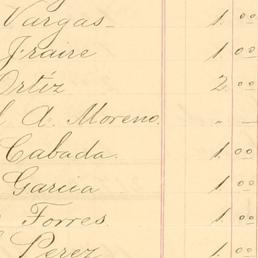 Vargas 1.00
Fraire 1.00
Ortíz 2.00
A. Moreno. " "
Cabada. 1.00
Garcia 1.00
Torres 1.00
Perez 1.00